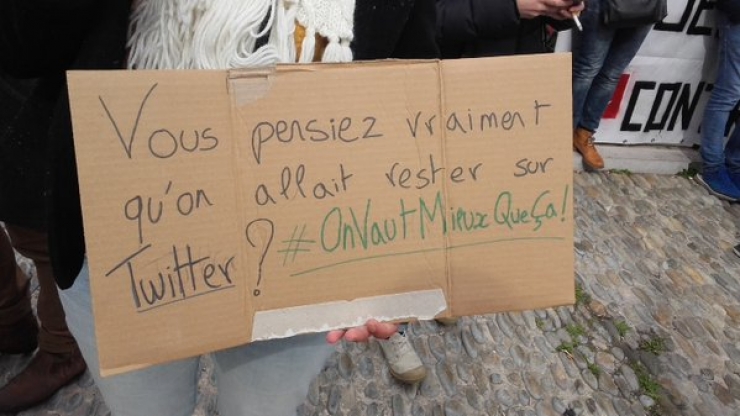 Vous pensiez vraiment
qu'on allait rester sur
Twitter? #OnVautMieuxQueÇa!
CONT